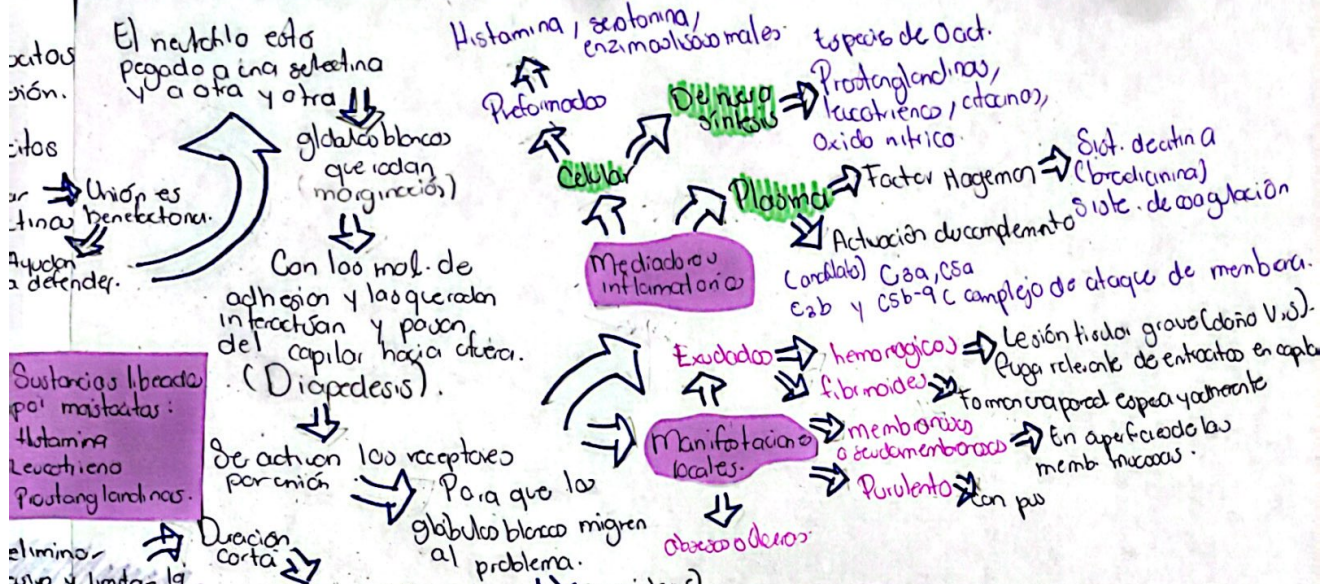 El neutrfilo esta
pegado a una selectina
y a otra y otra
globulos blancos
que rodan
(marginación)
Con las mol. de
adhesion y las que rodan
interactúan y pasan
del capilar hacia afuera.
(Diapedesis).
Se activan los receptores
por unión
Para que los
glóbulos blancos migren
al problema.
Unión es
benefactora.
Ayudan
a defender.
Sustancias liberada
por mastocitos:
Histamina
Leucotrieno
Prostanglandinas.
eliminar
Duración
corta
Histamina, serotonina,
enzimas lisosomales.
Preformados
Celular
De nueva
síntesis
Especies de O act.
Prostanglandinas,
leucotrienos, citocinas,
Oxido nitrico.
Mediadores
inflamatorios
Plasma
Factor Hageman
Sist. de cinina
(bradicinina)
Siste. de coagulación
Activación de complemento
C3a, C5a
C3b y C5b-9 C complejo de ataque de membrana.
Manifestaciones
locales.
Exudados
hemorragicos
Lesión tisular grave (daño V.S).
Fuga relevante de eritrocitos en capila
fibrinoides
Forman una pared espesa y adherente
membranosos
o seudomembranosos
En superficies de las
memb. mucosas.
Purulento
Con pus
abscesos o úlceras.